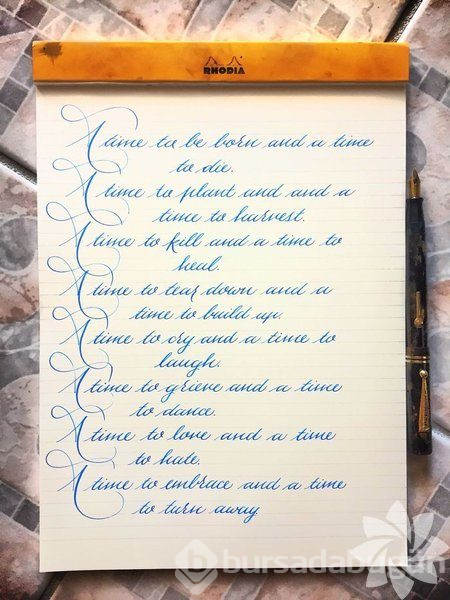 RHODIA
A time to be born and a time
to die.
A time to plant and and a
time to harvest.
A time to kill and a time to
heal.
A time to tear down and a
time to build up.
A time to cry and a time to
laugh.
A time to grieve and a time
to dance.
A time to love and a time
to hate.
A time to embrace and a time
to turn away
bursadabugün